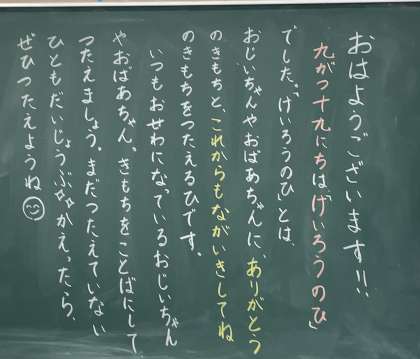 おはようございます!!
九がつ十九にちは「けいろうのひ」
でした。「けいろうのひ」とは、
おじいちゃんやおばあちゃんに、ありがとう
のきもちと、これからもながいきしてね
のきもちをつたえるひです。
いつもおせわになっているおじいちゃん
やおばあちゃん。きもちをことばにして、
つたえましょう。まだつたえていない
ひともだいじょうぶ。かえったら、
ぜひつたえようね